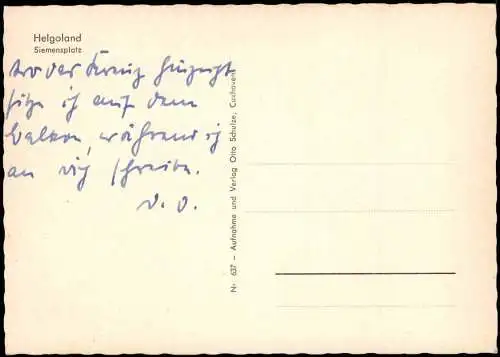 Helgoland
Siemensplatz
wo das Kreuz hinzeigt
sitze ich auf dem
Balkon, während ich
an dich schreibe.
D. O.
Nr. 637 – Aufnahme und Verlag Otto Schulze, Cuxhaven